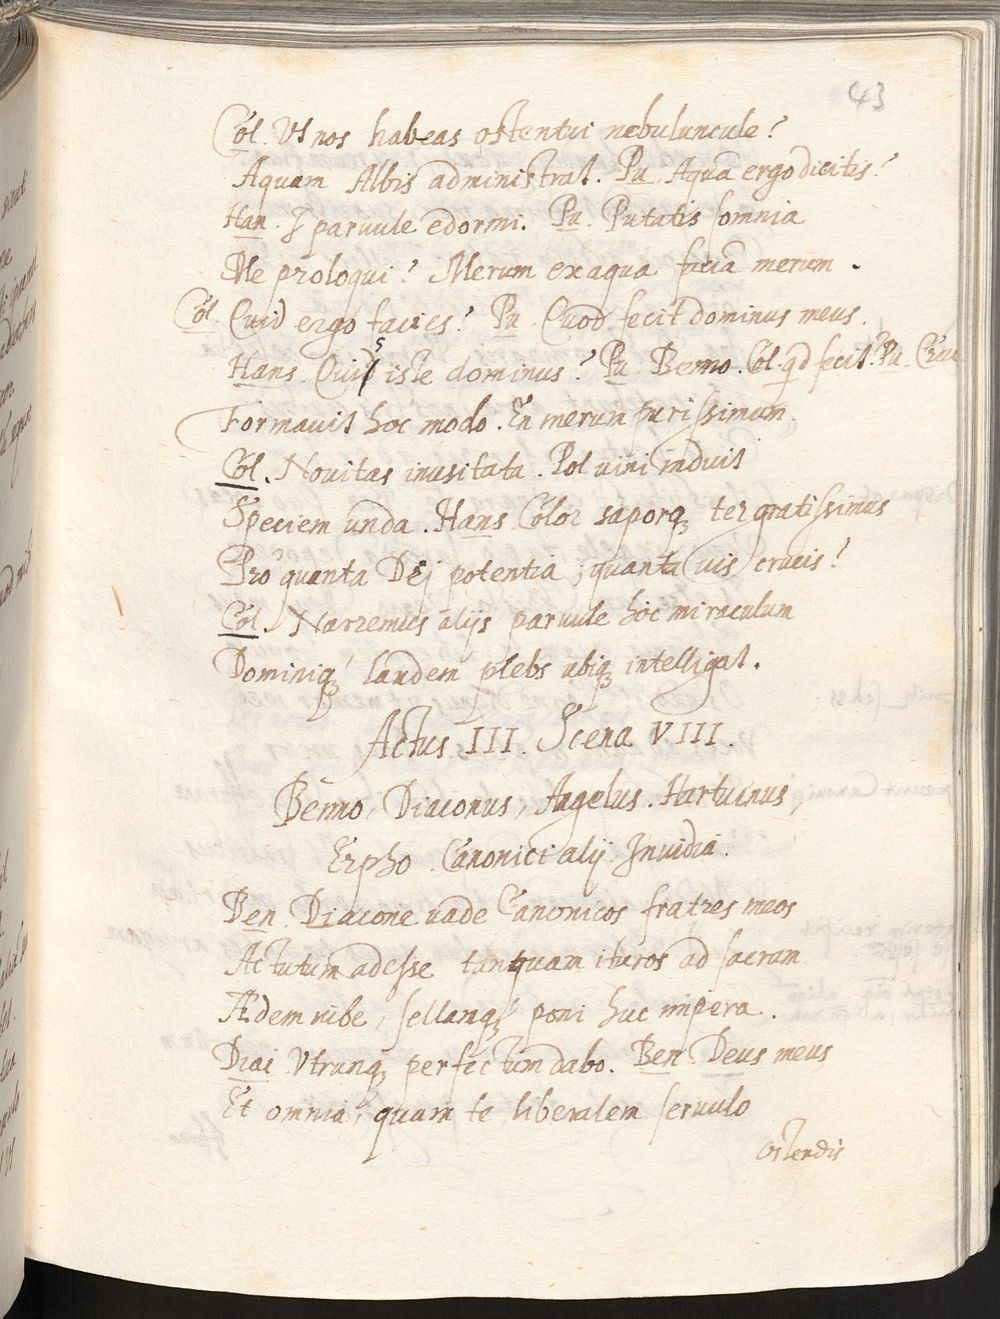 43
Col. Vt nos habeas ostentui nebuluncule?
Aquam Albis administrat. Pu. Aquā ergo dicitis?
Han. I paruule edormi. Pu. Putatis somnia
Me proloqui? Merum ex aqua faciā merum.
Col. Quid ergo facies? Pu. Quod fecit dominus meus.
Hans. Quis iste dominus? Pu. Benno. Col. qd fecit? Pu. Cruc
Formauit hoc modo. En merum purissimum.
Col. Nouitas inusitata. Pol vini induit
Speciem unda. Hans. Color saporq; ter gratissimus
Pro quanta Dej potentia, quanta uis crucis!
Col. Narremus alijs paruule hoc miraculum
Dominiq; laudem plebs ubiq; intelligat.
Actus III. Scena VIII.
Benno, Diaconus, Angelus. Hartuinus,
Erpho Canonici alij Inuidia.
Ben. Diacone uade Canonicos fratres meos
Actutum adesse tanquam ituros ad sacram
Ædem iube, sellamq; poni huc impera.
Diac. Vtrunq; perfectum dabo. Ben. Deus meus
Et omnia, quam te liberalem seruulo
Ostendis